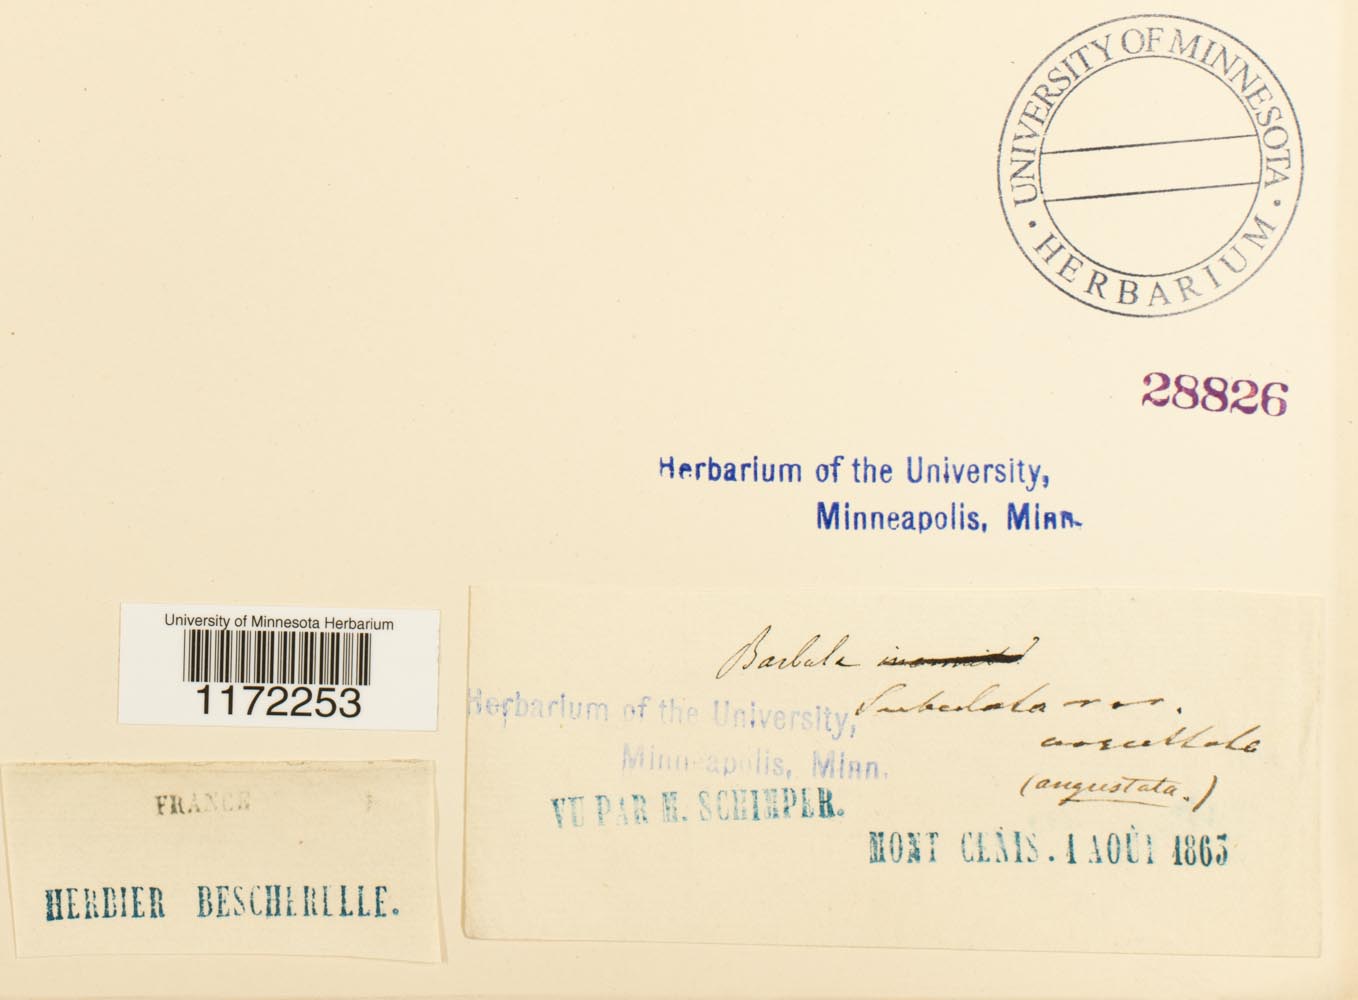 UNIVERSITY OF MINNESOTA
HERBARIUM
28826
Herbarium of the University,
Minneapolis, Minn.
University of Minnesota Herbarium
1172253
FRANCE
HERBIER BESCHERELLE.
Barbula
subulata var.
(angustata.)
Herbarium of the University,
Minneapolis, Minn.
VU PAR M. SCHIMPER.
MONT CENIS. 1 AOÛT 1863